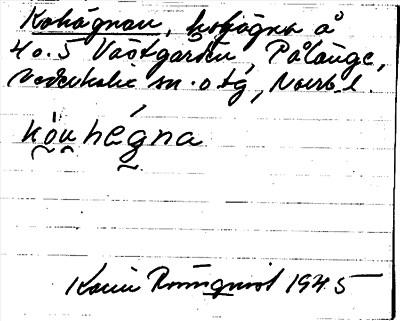 Kohägnan, kohägna å
40.5 Västgården, Pålänge,
Nederkalix sn. o tg, Norrb. l.
kò̯u̯hégna
Karin Rönnquist 1945